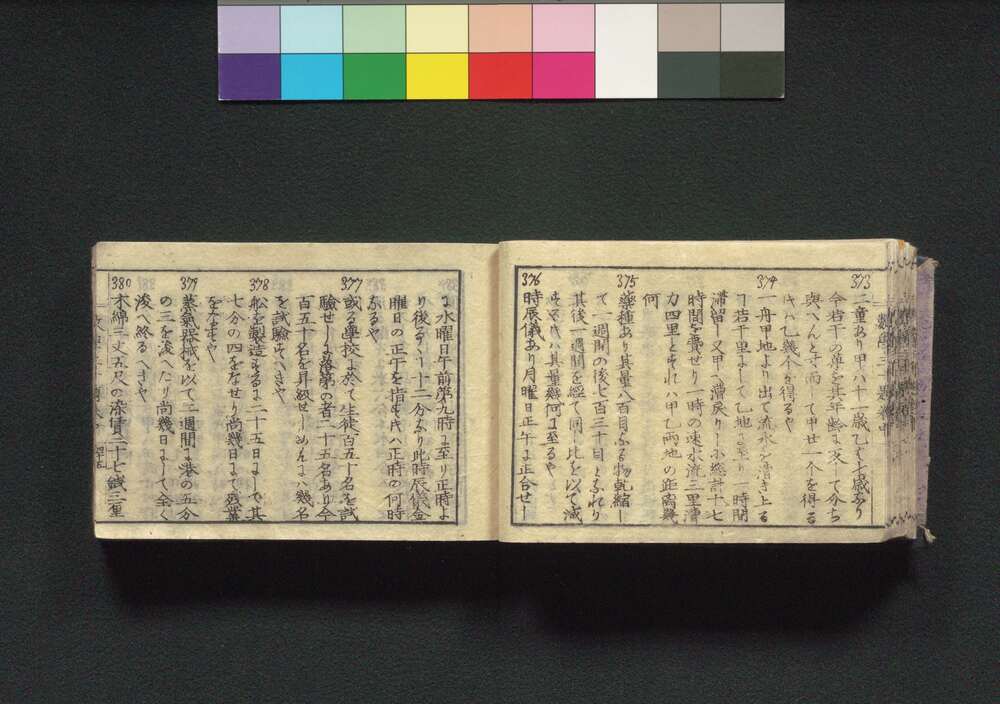 373
二童あり甲ハ十一歳乙ハ七歳なり
今若干の
與へんとす而して甲廿一個を得る
ときハ乙幾个を得るや
374
一舟甲地より出て流水を漕き上る
丁若干里にして乙地に至り一時間
滞留し又甲へ漕戻りしに總計十七
時間を費せり一時の速水流三里漕
力四里とすれハ甲乙兩地の距離幾
何
375
藥種あり其量八百目なる物乾縮し
て一週間の後七百三十目となれり
其後一週間を經て同し比を以て減
するときハ其量幾何に至るや
376
時辰儀あり月曜日正午に正合せし
に水曜日午前第九時に至り正時よ
り後るゝ十二分なり此時辰儀金
曜日の正午を指すときハ正時の何時
なるや
377
或る學校に於て生徒百五十名を試
驗せしに落第の者二十五名あり今
百五十名を昇級せしめんにハ幾名
を試驗すへきや
378
船を製造するに二十五日にして其
七分の四をなせり尚幾日にて
379
蒸氣器械を以て三週間に港の五分
の三を浚へたり尚幾日にして全く
浚へ終るへきや
380
木綿三丈五尺の染賃二十七錢三厘